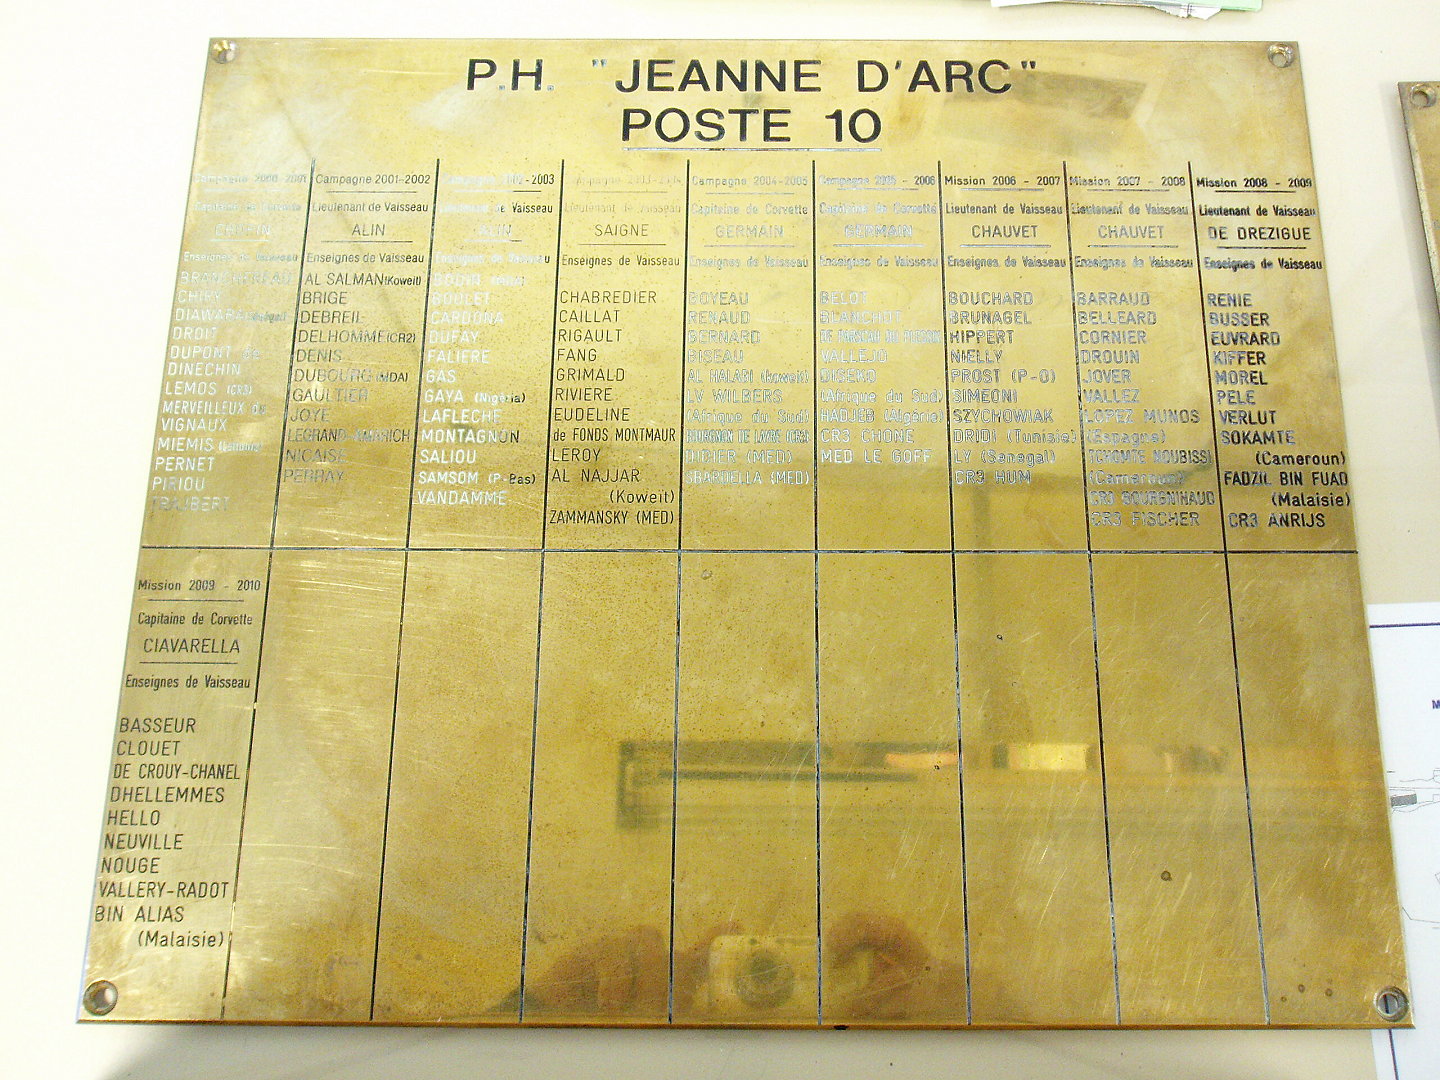 P.H. "JEANNE D'ARC"
POSTE 10
Campagne 2000-2001
Capitaine de Corvette
Enseignes de Vaisseau
CHIRY
DIAWARA
DROIT
DUPONT de
DINECHIN
LEMOS (CR3)
MERVEILLEUX du
VIGNAUX
MIEMIS
PERNET
PIRIOU
TRAUBERT
Campagne 2001-2002
Lieutenant de Vaisseau
ALIN
Enseignes de Vaisseau
AL SALMAN (Koweit)
BRIGE
DEBREIL
DELHOMME (CR2)
DENIS
DUBOURG (MDA)
GAULTIER
JOYE
LEGRAND-AMARICH
NICAISE
PERRAY
Campagne 2002-2003
Lieutenant de Vaisseau
ALIN
Enseignes de Vaisseau
BOULET
CARDONA
DUFAY
FALIERE
GAS
GAYA (Nigéria)
LAFLECHE
MONTAGNON
SALIOU
SAMSOM (P-Bas)
VANDAMME
Campagne 2003-2004
Lieutenant de Vaisseau
SAIGNE
Enseignes de Vaisseau
CHABREDIER
CAILLAT
RIGAULT
FANG
GRIMALD
RIVIERE
EUDELINE
de FONDS MONTMAUR
LEROY
AL NAJJAR
(Koweit)
ZAMMANSKY (MED)
Campagne 2004-2005
Capitaine de Corvette
GERMAIN
Enseignes de Vaisseau
BOYEAU
RENAUD
BERNARD
BISEAU
AL HALABI (Koweit)
LV WILBERS
(Afrique du Sud)
DIDIER (MED)
SBARDELLA (MED)
Campagne 2005 - 2006
Capitaine de Corvette
GERMAIN
Enseignes de Vaisseau
BELOT
BLANCHOT
VALLEJO
DISEKO
(Afrique du Sud)
HADJEB (Algérie)
CR3 CHONE
MED LE GOFF
Mission 2006 - 2007
Lieutenant de Vaisseau
CHAUVET
Enseignes de Vaisseau
BOUCHARD
BRUNAGEL
HIPPERT
NIELLY
PROST (P-O)
SIMEONI
SZYCHOWIAK
DRIDI (Tunisie)
LY (Senegal)
CR3 HUM
Mission 2007 - 2008
Lieutenant de Vaisseau
CHAUVET
Enseignes de Vaisseau
BARRAUD
BELLEARD
CORNIER
DROUIN
JOVER
VALLEZ
LOPEZ MUNOS
(Espagne)
TCHOMTE NOUBISSI
(Cameroun)
CR3 BOURGNIHAUD
CR3 FISCHER
Mission 2008 - 2009
Lieutenant de Vaisseau
DE DREZIGUE
Enseignes de Vaisseau
RENIE
BUSSER
EUVRARD
KIFFER
MOREL
PELE
VERLUT
SOKAMTE
(Cameroun)
FADZIL BIN FUAD
(Malaisie)
CR3 ANRIJS
Mission 2009 - 2010
Capitaine de Corvette
CIAVARELLA
Enseignes de Vaisseau
BASSEUR
CLOUET
DE CROUY-CHANEL
DHELLEMMES
HELLO
NEUVILLE
NOUGE
VALLERY-RADOT
BIN ALIAS
(Malaisie)